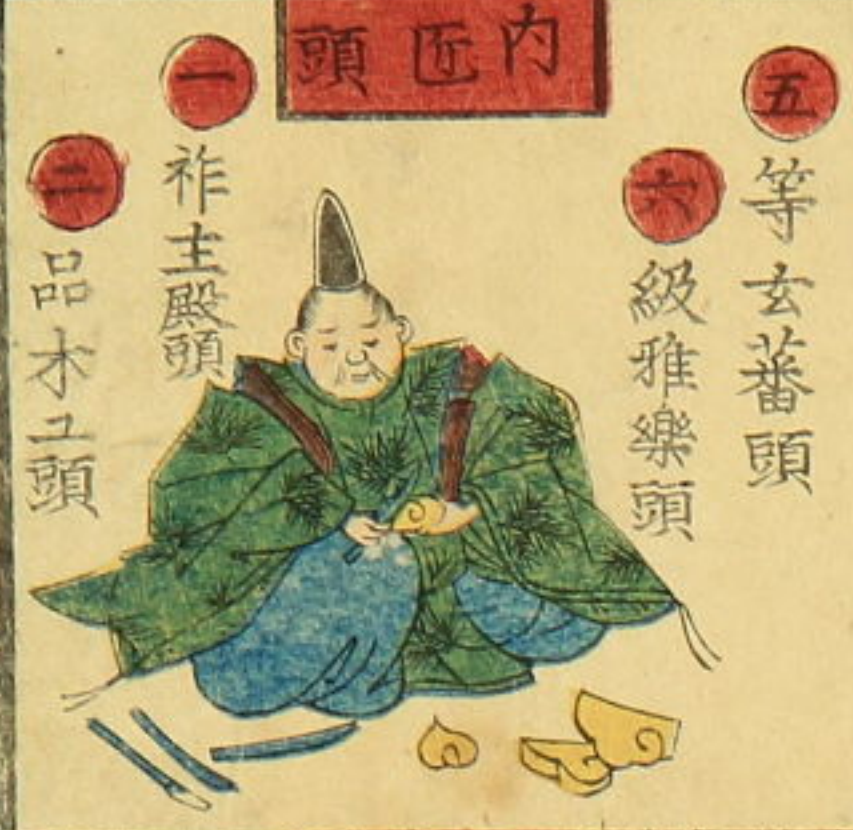 内匠頭
五
等玄蕃頭
六
級雅樂頭
一
祚主殿頭
二
品木工頭